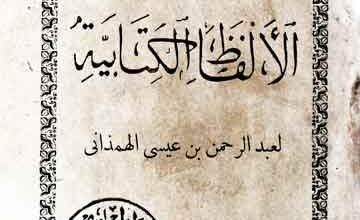 الأَلْفَاظُ الكِتَابِيَّةُ
لعبد الرحمن بن عيسى الهمذانى